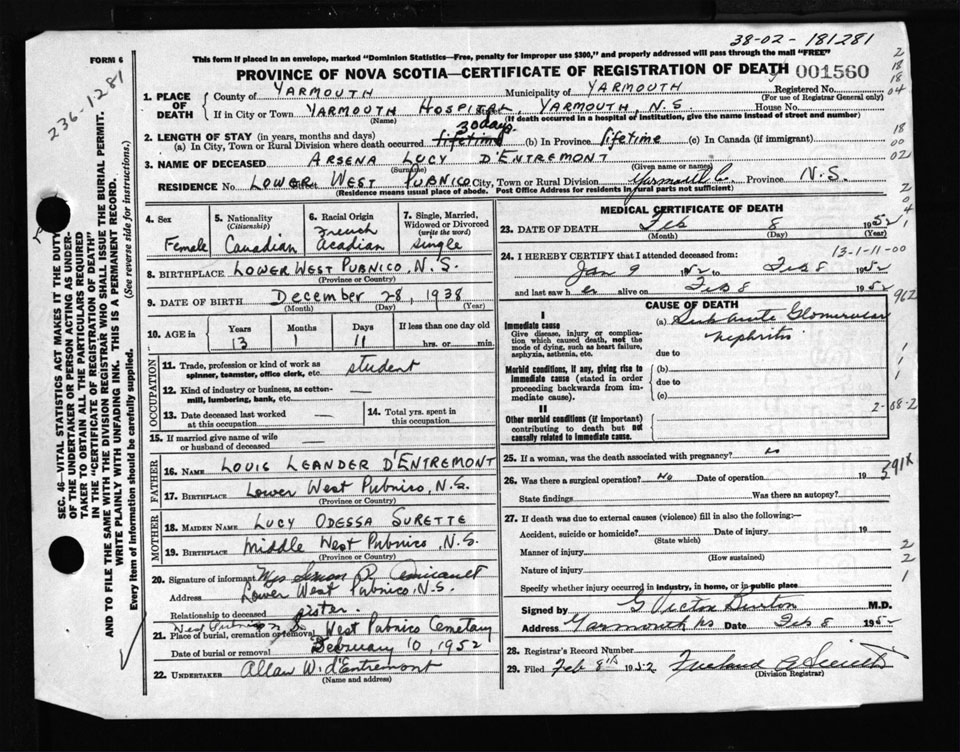 38-02-181281
FORM 6
This form if placed in an envelope, marked "Dominion Statistics—Free, penalty for improper use $300," and properly addressed will pass through the mail "FREE"
PROVINCE OF NOVA SCOTIA—CERTIFICATE OF REGISTRATION OF DEATH 001560
236-1281
SEC. 46—VITAL STATISTICS ACT MAKES IT THE DUTY
OF THE UNDERTAKER OR PERSON ACTING AS UNDER-
TAKER TO OBTAIN ALL THE PARTICULARS REQUIRED
IN THE "CERTIFICATE OF REGISTRATION OF DEATH"
AND TO FILE THE SAME WITH THE DIVISION REGISTRAR WHO SHALL ISSUE THE BURIAL PERMIT.
WRITE PLAINLY WITH UNFADING INK. THIS IS A PERMANENT RECORD.
Every item of information should be carefully supplied. (See reverse side for instructions.)
1. PLACE OF DEATH
County of YARMOUTH Municipality of YARMOUTH Registered No.
(For use of Registrar General only)
If in City or Town YARMOUTH HOSPITAL, YARMOUTH, N.S. House No.
(Name) (If death occurred in a hospital of institution, give the name instead of street and number)
2. LENGTH OF STAY (in years, months and days) 30 days.
(a) In City, Town or Rural Division where death occurred lifetime (b) In Province lifetime (c) In Canada (if immigrant)
3. NAME OF DECEASED ARSENA LUCY D'ENTREMONT
(Surname) (Given name or names)
RESIDENCE No. LOWER WEST PUBNICO City, Town or Rural Division Yarmouth Co. Province N.S.
(Residence means usual place of abode. Post Office Address for residents in rural parts not sufficient)
4. Sex
Female
5. Nationality
(Citizenship)
Canadian
6. Racial Origin
French
Acadian
7. Single, Married,
Widowed or Divorced
(write the word)
single
8. BIRTHPLACE LOWER WEST PUBNICO, N.S.
(Province or Country)
9. DATE OF BIRTH December 28, 1938
(Month) (Day) (Year)
10. AGE in
Years Months Days If less than one day old
13 1 11 hrs. or min.
OCCUPATION
11. Trade, profession or kind of work as student
spinner, teamster, office clerk, etc.
12. Kind of industry or business, as cotton-
mill, lumbering, bank, etc. —
13. Date deceased last worked
at this occupation —
14. Total yrs. spent in
this occupation
15. If married give name of wife
or husband of deceased —
FATHER
16. NAME LOUIS LEANDER D'ENTREMONT
17. BIRTHPLACE Lower West Pubnico, N.S.
(Province or Country)
MOTHER
18. MAIDEN NAME LUCY ODESSA SURETTE
19. BIRTHPLACE Middle West Pubnico, N.S.
(Province or Country)
20. Signature of informant Mrs Simon P. Amirault
Address Lower West Pubnico, N.S.
Relationship to deceased sister.
21. Place of burial, cremation or removal West Pubnico Cemetary
Date of burial or removal February 10, 1952
22. UNDERTAKER Allan W. d'Entremont
(Name and address)
MEDICAL CERTIFICATE OF DEATH
23. DATE OF DEATH Feb 8 1952
(Month) (Day) (Year)
13-1-11-00
24. I HEREBY CERTIFY that I attended deceased from:
Jan 9 1952 to Feb 8 1952
and last saw her alive on Feb 8 1952
CAUSE OF DEATH
I
Immediate cause
Give disease, injury or complica-
tion which caused death, not the
mode of dying, such as heart failure,
asphyxia, asthenia, etc.
(a) Sub Acute Glomerular
nephritis
due to
Morbid conditions, if any, giving rise to
immediate cause (stated in order
proceeding backwards from im-
mediate cause).
(b)
due to
(c)
II
Other morbid conditions (if important)
contributing to death but not
causally related to immediate cause.
25. If a woman, was the death associated with pregnancy? no
26. Was there a surgical operation? no Date of operation 19
State findings Was there an autopsy?
591X
27. If death was due to external causes (violence) fill in also the following:—
Accident, suicide or homicide? Date of injury 19
(State which)
Manner of injury
(How sustained)
Nature of injury
Specify whether injury occurred in industry, in home, or in public place
Signed by G Victor Burton M.D.
Address Yarmouth NS Date Feb 8 1952
28. Registrar's Record Number
29. Filed Feb 8th 1952
(Division Registrar)